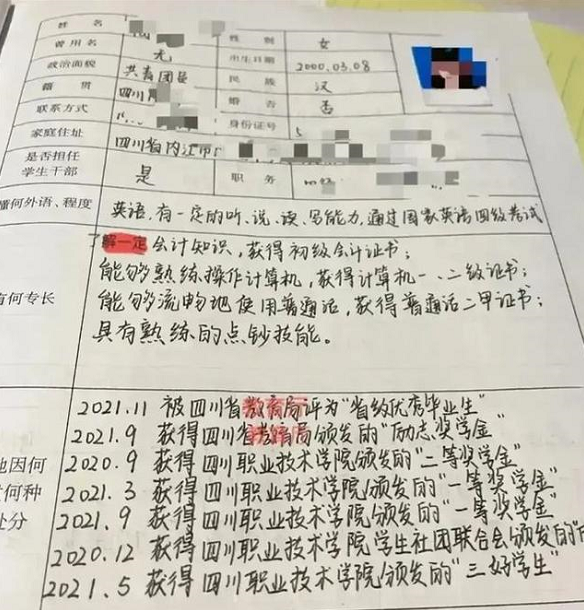 姓名
性别 女
曾用名 无 出生日期 2000.03.08
政治面貌 共青团员 民族 汉
籍贯 四川 婚否 否
联系方式 身份证号 5
家庭住址 四川省内江市
是否担任
学生干部 是 职务
懂何外语、程度 英语,有一定的听、说、读、写能力,通过国家英语四级考试
了解一定会计知识,获得初级会计证书;
能够熟练操作计算机,获得计算机一、二级证书;
有何专长 能够流畅地使用普通话,获得普通话二甲证书;
具有熟练的点钞技能。
2021.11 被四川省教育局评为“省级优秀毕业生”
2021.9 获得四川省教育局颁发的“励志奖学金”
因何 2020.9 获得四川职业技术学院颁发的“二等奖学金”
何种 2021.3 获得四川职业技术学院颁发的“一等奖学金”
处分 2021.9 获得四川职业技术学院颁发的“一等奖学金”
2020.12 获得四川职业技术学院学生社团联合会颁发的“
2021.5 获得四川职业技术学院颁发的“三好学生”